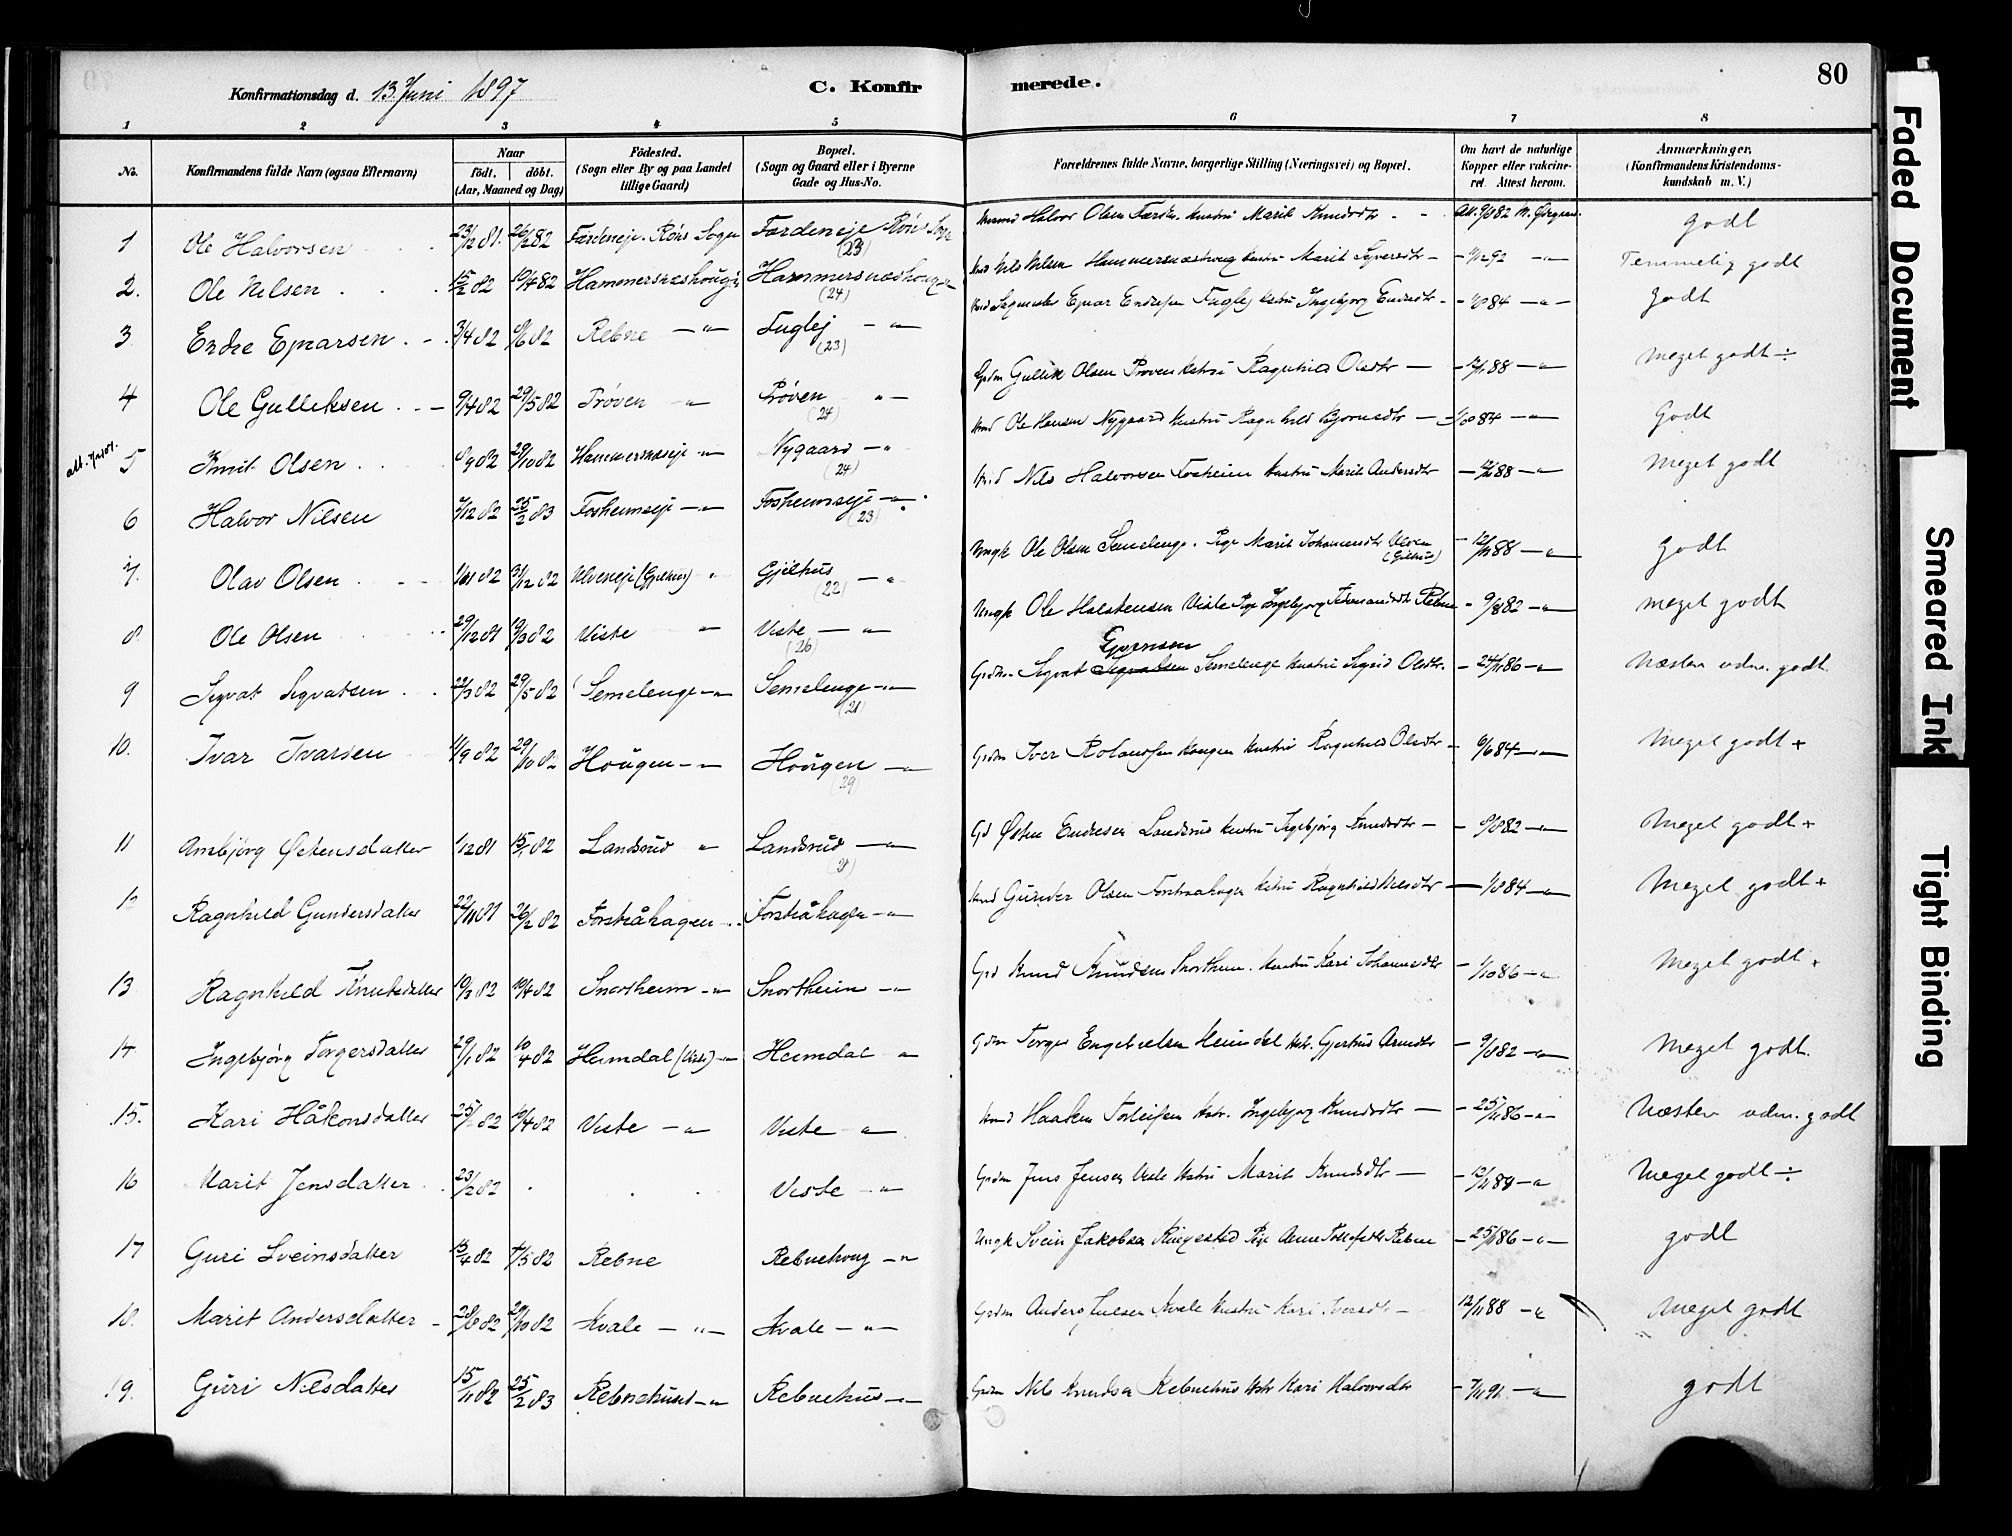 80
Konfirmationsdag d. 13. Juni 1897
C. Konfirmerede.
1 2 3 4 5 6 7 8
No. Konfirmandens fulde Navn (ogsaa Efternavn) Naar födt. döbt. (Aar, Maaned og Dag) Födested. (Sogn eller By og paa Landet tillige Gaard) Bopæl. (Sogn og Gaard eller i Byerne Gade og Hus-No. Forældrenes fulde Navne, borgerlige Stilling (Næringsvei) og Bopæl. Om havt de naturlige Kopper eller vakcineret. Attest herom. Anmærkninger. (Konfirmandens Kristendomskundskab m. V.)
1 Ole Halvorsen 23/12 81. 26/2 82 Færdeneje. Røns Sogn Færdeneje Røns Sogn (23) Halvor Olsen Hustru Marit Knudsdtr godt
2. Ole Nilsen 15/2 82 10/4 82 Hammersnæshoug Hammersnæshoug (24) Nils Nilsen Hammersnæshoug Hustru Marit Temmelig godt
3 Endre Ejnarsen 3/4 82 82 Rebne Fuglej (23) Ejnar Endresen Fuglej Hustru Ingebjorg Endredtr godt
4 Ole Gulliksen 9/4 82 29/5 82 Prøven Prøven (24) Grdm Gullik Olsen Prøven Hustru Ragnhild Olsdtr 88 Meget godt ÷
5 Knut Olsen 8/9 82 29/10 82 Hammersnæseje Nygaard (24) Ole Hansen Nygaard Hustru Ragnhild Bjornsdtr 84 Godt
6 Halvor Nilsen 7/12 82 25/2 83 Fosheimseje Fosheimseje (23) Nils Halvorsen Fosheim Hustru Marit Andersdtr 88 Meget godt
7. Olav Olsen 82 31/12 82 Ulveneje (Gjelhus) Gjelhus (22) Ungk Ole Olsen Semelenge. Pige Marit Johannesdtr Ulven (Gjelhus) 88 godt
8 Ole Olsen 29/12 81 19/3 82 Viste Viste (26) Ungk Ole Halstensen Viste Pige Ingebjorg Rebne 9/8 82 meget godt
9 Sigvat Sigvatsen 22/3 82 29/5 82 Semelenge Semelenge (21) Grdm. Sigvat Sigvatsen Ejvensen Semelenge Hustru Sigrid Olsdtr. 24/11 86 Næsten udm. godt.
10. Ivar Ivarsen 11/9 82 29/10 82 Hougen Hougen (29) Grdm Iver Hougen Hustru Ragnhild Olsdtr 84 Meget godt +
11 Ambjörg Østensdatter 1/12 81 15/1 82 Landsrud Landsrud Gd Østen Endresen Landsrud Hustru Ingebjörg Knudsdtr 9/8 82 Meget godt +
12 Ragnhild Gundersdatter 22/11 81 26/2 82 Forstråhagen Forstråhagen Gunder Olsen Hustru Ragnhild Nilsdtr 84 Meget godt +
13 Ragnhild Knutsdatter 19/3 82 10/4 82 Snortheim Snortheim Grd Knud Knudsen Snortheim. Hustru Kari Johannesdtr 86 Meget godt +
14 Ingebjörg Torgersdatter 29/1 82 10/4 82 Heimdal (Viste) Heimdal Gdm Torger Engebretsen Heimdal Hstr. Gjertrud 9/8 82 Meget godt.
15. Kari Håkonsdatter 82 10/4 82 Viste Viste Haaken Torleifsen Hstr. Ingebjorg Knudsdtr 25/11 86 Næsten udm. godt
16 Marit Jensdatter 23/2 82 Viste Grdm Jens Jensen Viste Hustru Marit Knudsdtr Meget godt ÷
17 Guri Sveinsdatter 13/4 82 82 Rebne Rebnehoug Ungk Svein Jakobsen Ringestad Pige Anne Rebne 25/11 86 godt
18. Marit Andersdatter 82 29/10 82 Kvale Kvale Grdm Anders Kvale Hustru Kari Iversdtr 12/11 88 Meget godt
19. Guri Nilsdatter 15/11 82 25/2 83 Rebnehuset Rebnehus Grdm Nils Knudsen Rebnehus Hstr Kari Halvorsdtr godt
Faded Document
Smeared Ink
Tight Binding